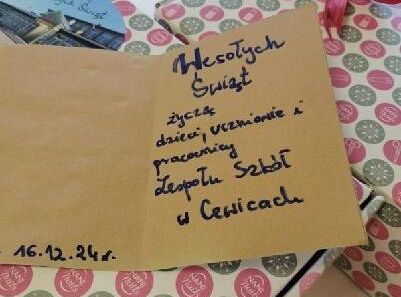 Wesołych
Świąt
życzą
dzieci, uczniowie i
pracownicy
Zespołu Szkół
w Cewicach
16.12.24r.